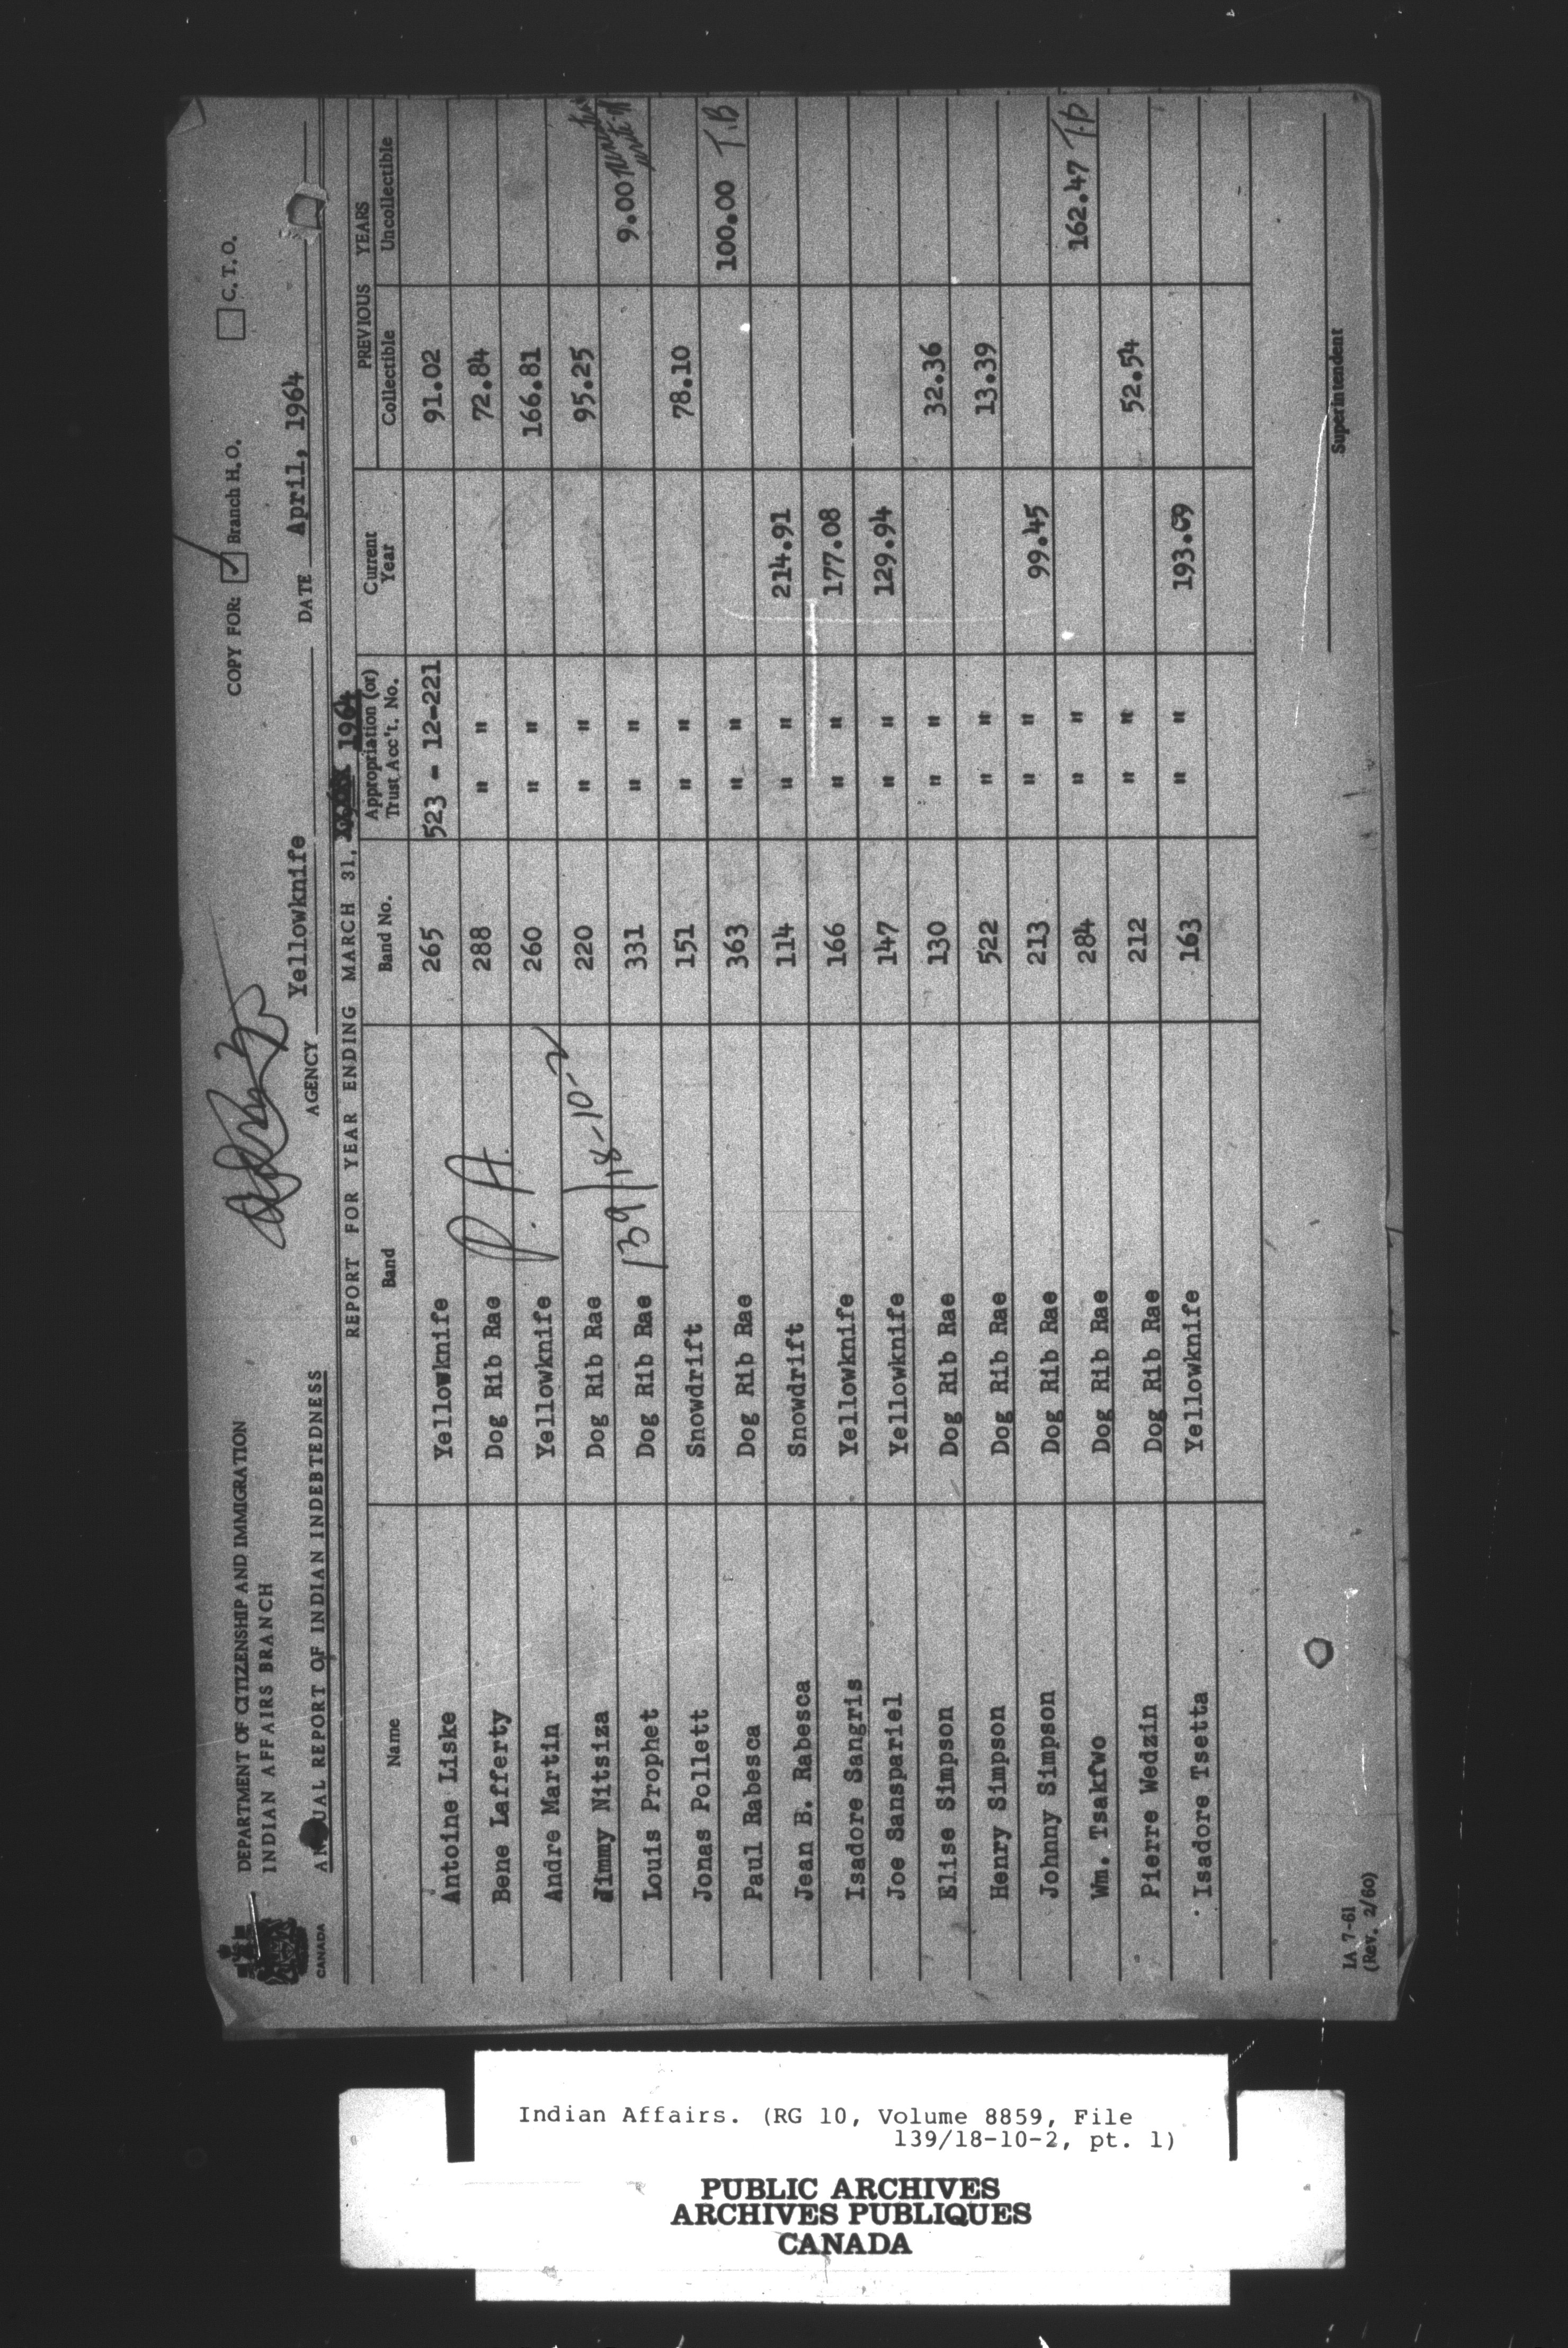 DEPARTMENT OF CITIZENSHIP AND IMMIGRATION
INDIAN AFFAIRS BRANCH
COPY FOR: ✓ Branch H.O. C.T.O.
CANADA
ANNUAL REPORT OF INDIAN INDEBTEDNESS AGENCY Yellowknife DATE April, 1964
REPORT FOR YEAR ENDING MARCH 31, 1964
Name Band Band No. Appropriation (or) Trust Acc't. No. Current Year PREVIOUS YEARS Collectible Uncollectible
Antoine Liske Yellowknife 265 523 - 12-221 91.02
Bene Lafferty Dog Rib Rae 288 " " 72.84
P. A.
Andre Martin Yellowknife 260 " " 166.81
Jimmy Nitsiza Dog Rib Rae 220 " " 95.25
139/18-10-2
Louis Prophet Dog Rib Rae 331 " " 9.00
Jonas Pollett Snowdrift 151 " " 78.10
Paul Rabesca Dog Rib Rae 363 " " 100.00 T.B
Jean B. Rabesca Snowdrift 114 " " 214.91
Isadore Sangris Yellowknife 166 " " 177.08
Joe Sanspariel Yellowknife 147 " " 129.94
Elise Simpson Dog Rib Rae 130 " " 32.36
Henry Simpson Dog Rib Rae 522 " " 13.39
Johnny Simpson Dog Rib Rae 213 " " 99.45
Wm. Tsakfwo Dog Rib Rae 284 " " 162.47 T.B
Pierre Wedzin Dog Rib Rae 212 " " 52.54
Isadore Tsetta Yellowknife 163 " " 193.69
Superintendent
IA 7-61
(Rev. 2/60)
Indian Affairs. (RG 10, Volume 8859, File
139/18-10-2, pt. 1)
PUBLIC ARCHIVES
ARCHIVES PUBLIQUES
CANADA